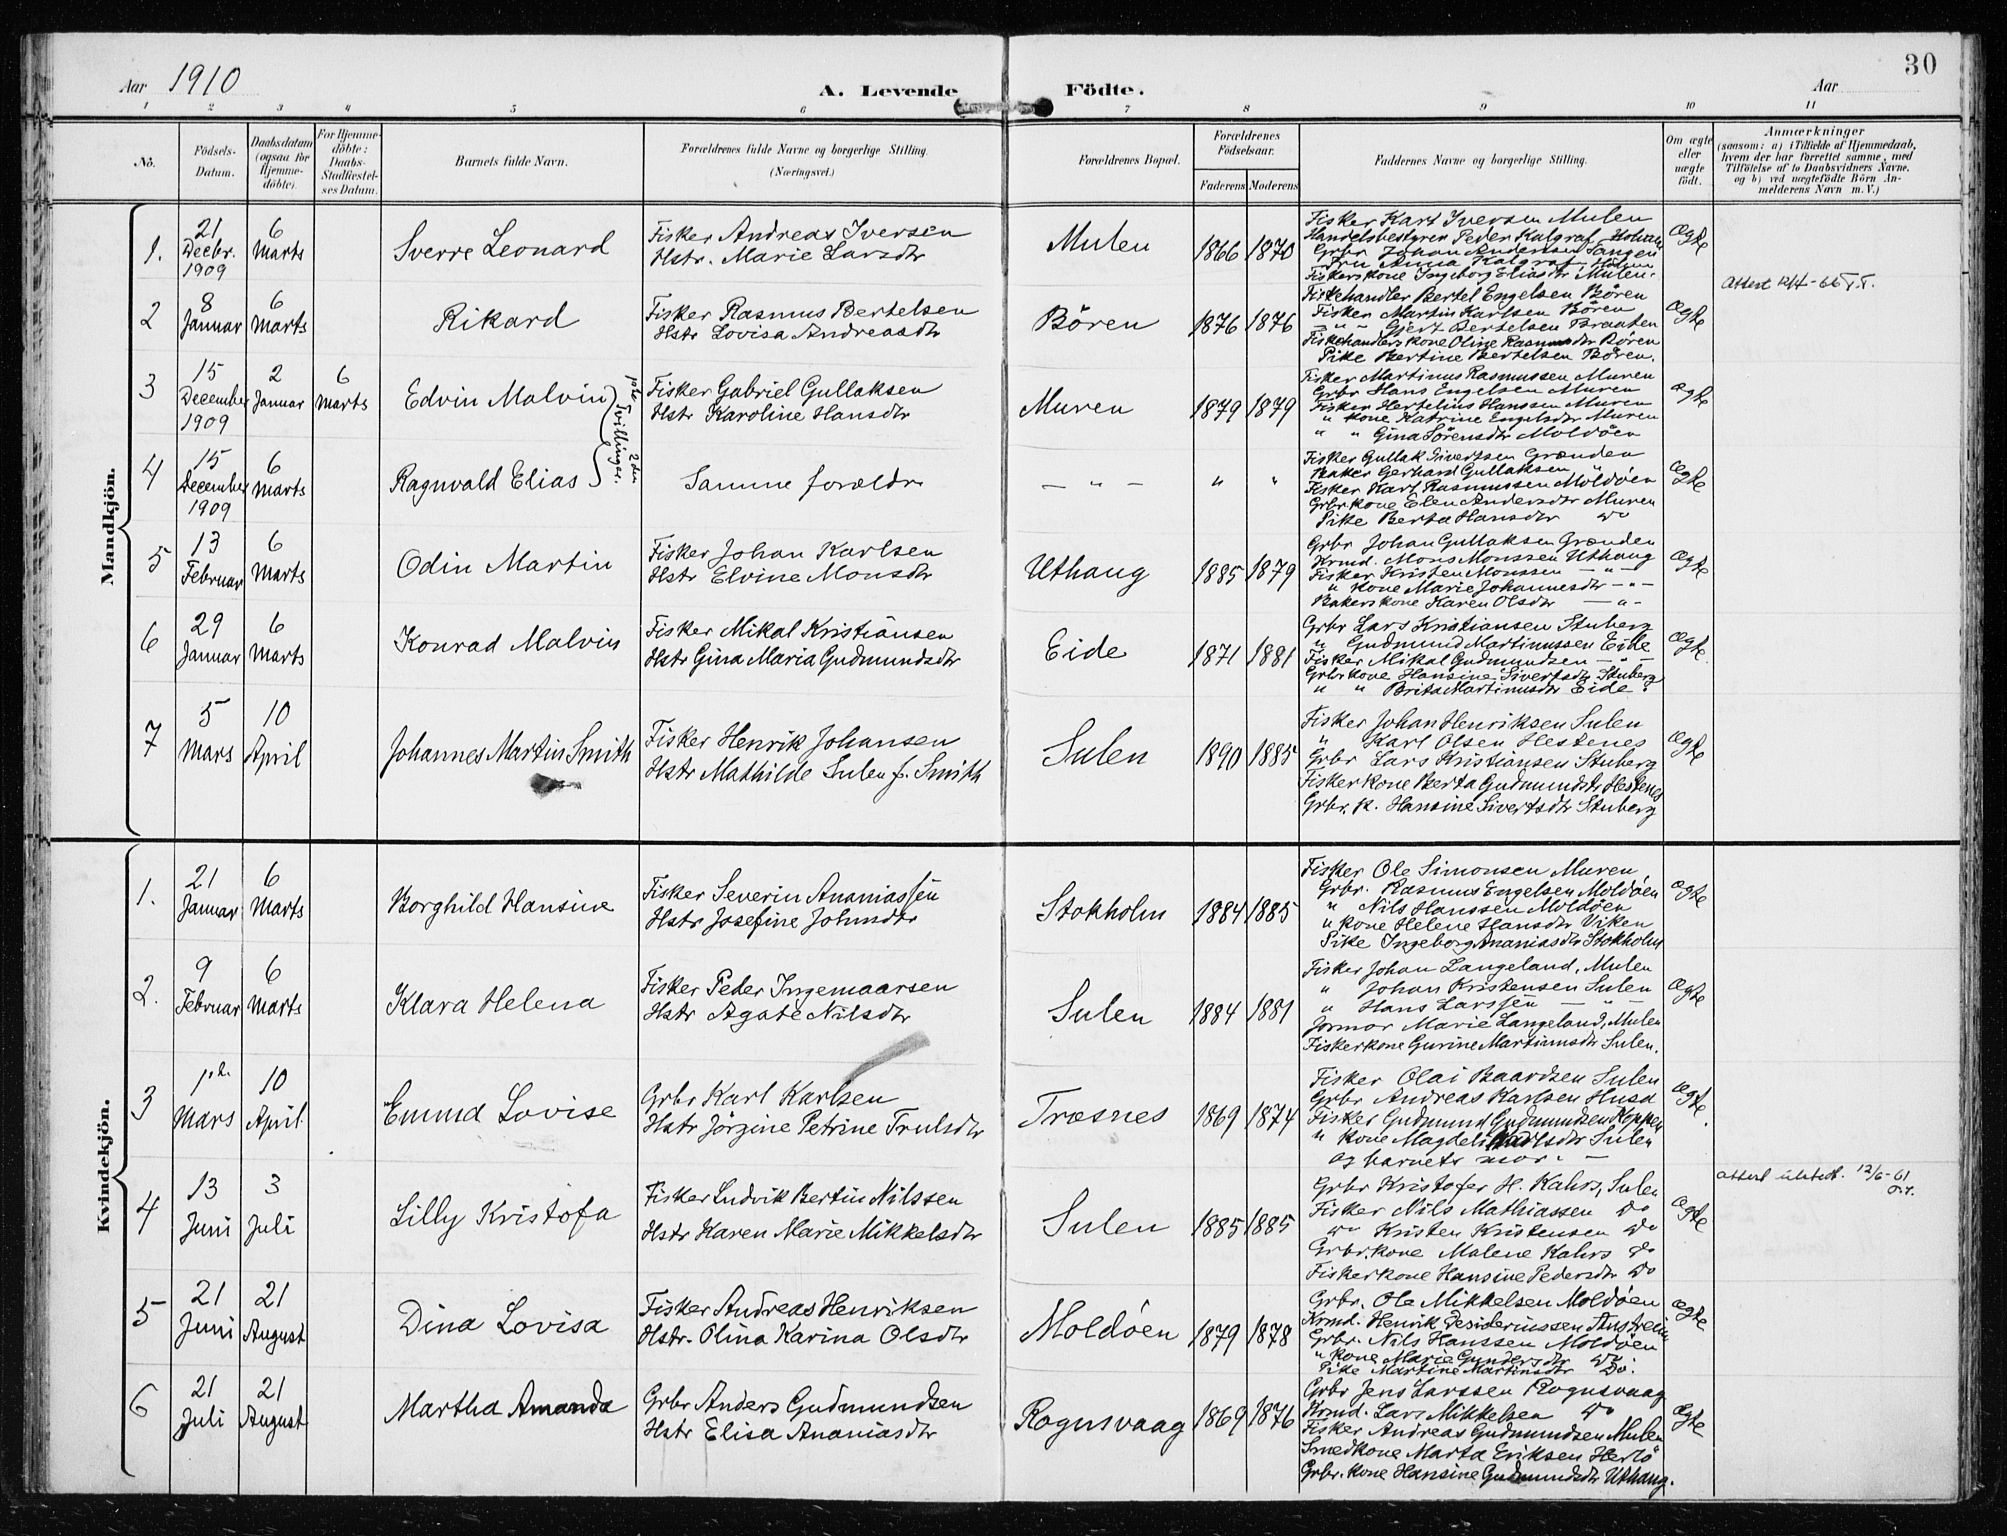 Aar 1910
A. Levende Födte.
Aar
30
1 2 3 4 5 6 7 8 9 10 11
No.
Födsels-Datum.
Daabsdatum (ogsaa for Hjemme-döbte).
For Hjemme-döbte: Daabs-Stadfæstel-ses Datum.
Barnets fulde Navn.
Forældrenes fulde Navne og borgerlige Stilling. (Næringsvei.)
Forældrenes Bopæl.
Forældrenes Födselsaar. Faderens Moderens
Faddernes Navne og borgerlige Stilling.
Om ægte eller uægte födt.
Anmærkninger
(saasom: a) i Tilfælde af Hjemmedaab,
hvem der har forrettet samme, med
Tilföielse af to Daabsvidners Navne,
og b) ved uægtefödte Börn An-
melderens Navn m. V.)
Mandkjön.
1. 21 Decbr. 1909 6 Marts Sverre Leonard
Fisker Andreas Iversen
Hstr. Marie Larsdtr
Mulen 1866 1870
Fisker Karl Iversen Mulen
Handelsbestyrer Peder Kalgraf
Grbr Johan Andersen
Fru Anna Kalgraf
Fiskerkone Ingeborg Eliasdtr Mulen.
Ægte
2 8 Januar 6 Marts Rikard
Fisker Rasmus Bertelsen
Hstr Lovisa Andreasdtr
Bören 1876 1876
Fiskehandler Bertel Engelsen Bören
Fisker Martin Karlsen Bören
" Gjert Bertelsen Braaten
Fiskehandlers kone Oline Rasmusdtr Bören
Pike Bertine Bertelsen Bören.
Ægte
Attest 12/4-66
3 15 December 1909 2 Januar 6 Marts Edvin Malvin
Tvillinger.
Fisker Gabriel Gullaksen
Hstr Karoline Hansdtr
Muren 1879 1879
Fisker Martinus Rasmussen Muren
Grbr Hans Engelsen Muren
Fisker Hertelius Hanssen Muren
" kone Katrine Engelsdtr Muren
" " Gina Sörensdtr Moldöen
ægte
4 15 December 1909 6 Marts Ragnvald Elias
Samme forældr
— " — " "
Fisker Gullak Sivertsen Grænden
Baker Gerhard Gullaksen "
Fisker Karl Rasmussen Moldöen
Grbr. kone Elen Andersdtr Muren
Pike Berta Hansdtr do
Ægte
5 13 Februar 6 Marts Odin Martin
Fisker Johan Karlsen
Hstr Elvine Monsdtr
Uthaug 1885 1879
Grbr Johan Gullaksen Grænden
Krmd. Mons Monssen Uthaug
Fisker Kristen Monssen — " —
" kone Marie Johannesdtr — " —
Bakerskone Karen Olsdtr — " —
Ægte
6 29 Januar 6 Marts Konrad Malvin
Fisker Mikal Kristiansen
Hstr Gina Maria Gudmundsdtr
Eide 1871 1881
Grbr Lars Kristiansen Stuberg
" Gudmund Martinussen Eide
Fisker Mikal Gudmundsen — " —
Grbrkone Hansine Sivertsdtr Stuberg
" " Brita Martinusdtr Eide.
Ægte.
7 5 Mars 10 April Johannes Martin Smith
Fisker Henrik Johansen
Hstr Mathilde Sulen f. Smith
Sulen 1890 1885
Fisker Johan Henriksen Sulen
" Karl Olsen Hestenes
Grbr Lars Kristiansen Stuberg
Fisker kone Berta Gudmundsdtr Hestenes
Grbr. k. Hansine Sivertsdtr Stuberg
Ægte
Kvindekjön.
1. 21 Januar 6 Marts Borghild Hansine
Fisker Severin Ananiassen
Hstr Josefine Johnsdtr
Stokholm 1884 1885
Fisker Ole Simonsen Muren
Grbr. Rasmus Engelsen Moldöen
" Nils Hanssen Moldöen
" kone Helene Hansdtr Viken
Pike Ingeborg Ananiasdtr Stokholm
Ægte
2. 9 Februar 6 Marts Klara Helena
Fisker Peder Ingemaarsen
Hstr Agate Nilsdtr
Sulen 1884 1881
Fisker Johan Langeland, Mulen
" Johan Kristensen Sulen
" Hans Larssen — " —
Jormor Marie Langeland, Mulen
Fiskerkone Gurine Martinusdtr Sulen.
Ægte
3 1ste Mars 10 April Emma Lovise
Grbr Karl Karlsen
Hstr Jörgine Petrine Trulsdtr
Træsnes 1869 1874
Fisker Olai Baardsen Sulen
Grbr Andreas Karlsen Husa
Fisker Gudmund Gudmundsen
" kone Sulen
og barnets mor. —
Ægte.
4 13 Juni 3 Juli Lilly Kristofa
Fisker Ludvik Bertin Nilssen
Hstr Karen Marie Mikkelsdtr
Sulen 1885 1885
Grbr Kristofer H. Kahrs, Sulen
Fisker Nils Mathiassen do
do Kristen Kristensen do
Grbr. kone Malene Kahrs do
Fiskerkone Hansine Pedersdtr do
Ægte
Attest utstedt. 12/6-61
5 21 Juni 21 August Dina Lovisa
Fisker Andreas Henriksen
Hstr. Olina Karina Olsdtr
Moldöen 1879 1878
Grbr. Ole Mikkelsen Moldöen
Krmd. Henrik Desideriussen
Grbr. Nils Hanssen Moldöen
" kone Marie Gundersdtr do
Pike Martine Martinsdtr do.
Ægte
6 21 Juli 21 August Martha Amanda
Grbr Anders Gudmundsen
Hstr Elisa Ananiasdtr
Rognsvaag 1869 1876
Grbr Jens Larssen Rognsvaag
Krmd. Lars Mikkelsen do
Fisker Andreas Gudmundsen Mulen
Smedkone Marta Eriksen Herlö
Grbr. kone Hansine Gudmundsdtr Uthaug.
Ægte